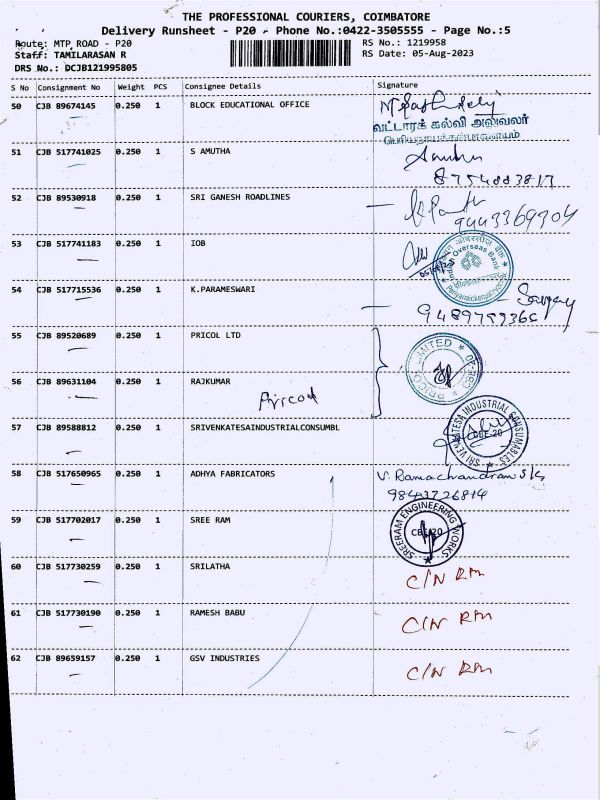 THE PROFESSIONAL COURIERS, COIMBATORE
Delivery Runsheet - P20 - Phone No.:0422-3505555 - Page No.:5
Route: MTP ROAD - P20 RS No.: 1219958
Staff: TAMILARASAN R RS Date: 05-Aug-2023
DRS No.: DCJB121995805
S No Consignment No Weight PCS Consignee Details Signature
50 CJB 89674145 0.250 1 BLOCK EDUCATIONAL OFFICE
வட்டாரக் கல்வி அலுவலர்
51 CJB 517741025 0.250 1 S AMUTHA
52 CJB 89530918 0.250 1 SRI GANESH ROADLINES
9443369304
53 CJB 517741183 0.250 1 IOB
Overseas Bank
54 CJB 517715536 0.250 1 K.PARAMESWARI
55 CJB 89520689 0.250 1 PRICOL LTD
PRICOL LIMITED
56 CJB 89631104 0.250 1 RAJKUMAR
Pricol
57 CJB 89588812 0.250 1 SRIVENKATESAINDUSTRIALCONSUMBL
SRI VENKATESA INDUSTRIAL CONSUMABLES
CBE-20
58 CJB 517650965 0.250 1 ADHYA FABRICATORS V. Ramachandran
9843726814
59 CJB 517702017 0.250 1 SREE RAM
SREERAM ENGINEERING WORKS
CBE-20
60 CJB 517730259 0.250 1 SRILATHA C/N RM
61 CJB 517730190 0.250 1 RAMESH BABU C/N RM
62 CJB 89659157 0.250 1 GSV INDUSTRIES C/N RM